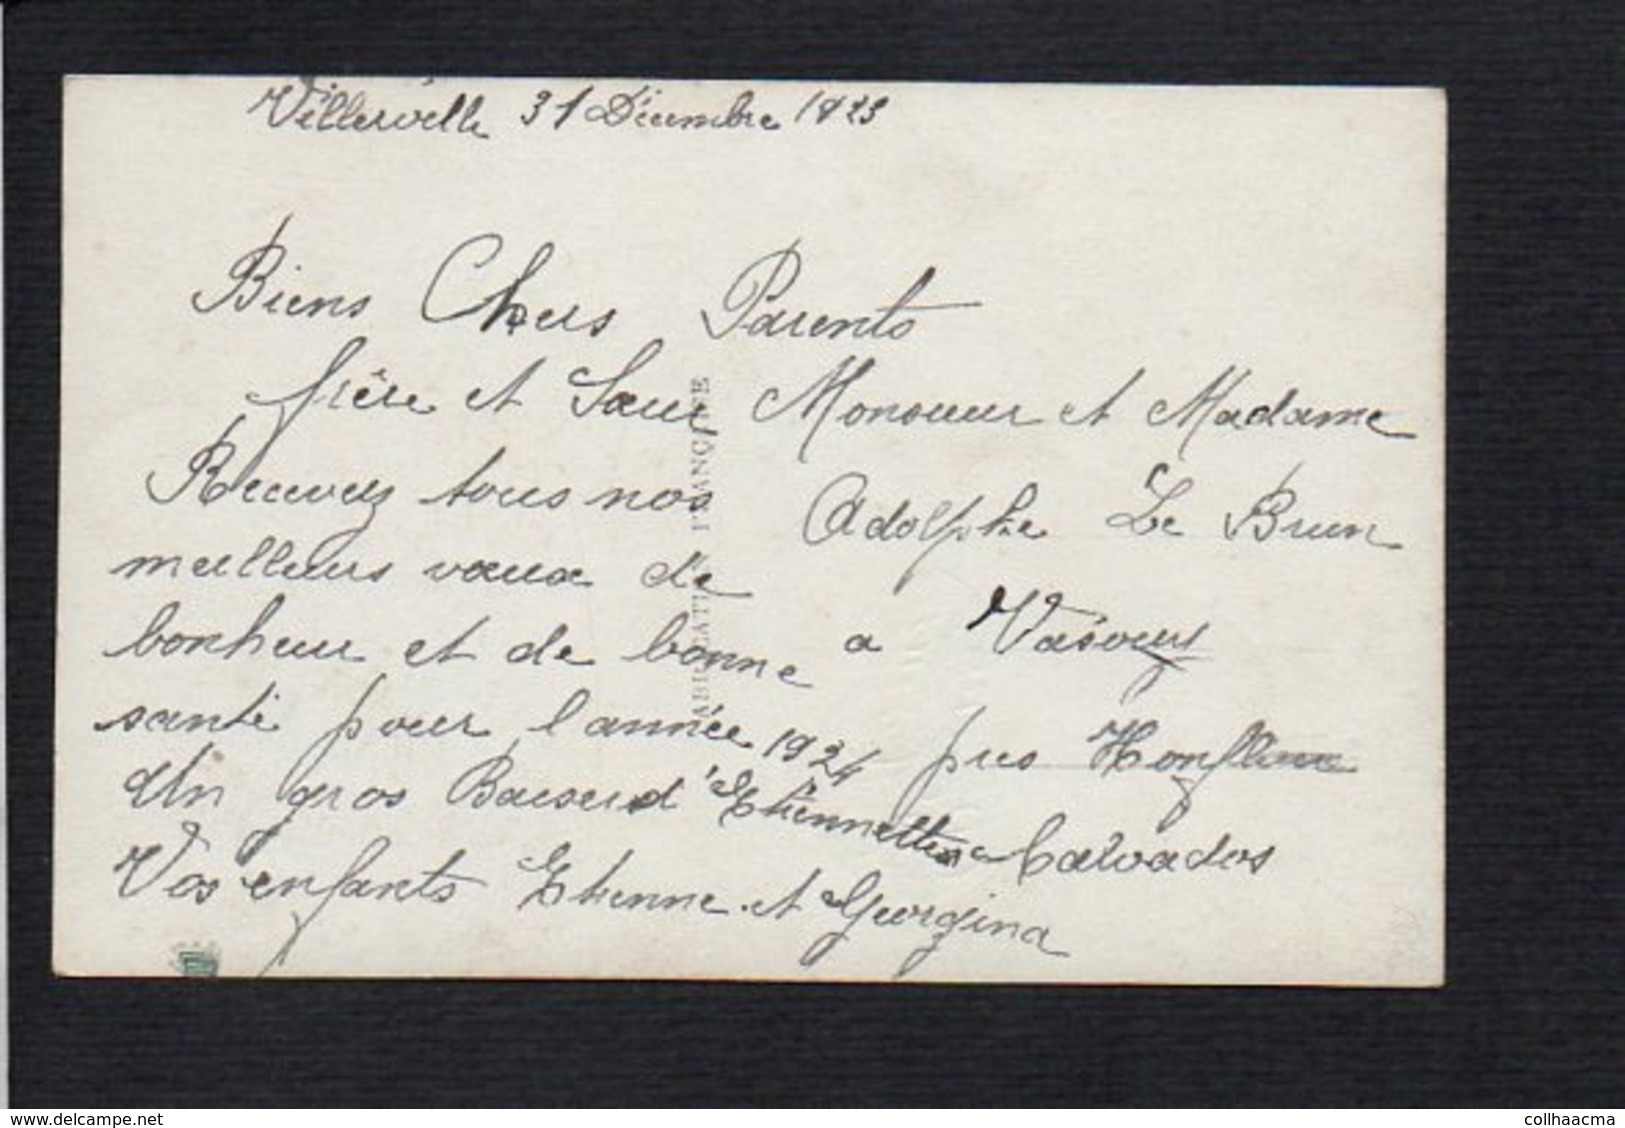 Villerville 31 Décembre 1923
Biens Chers Parents
frère et Sœur
Recevez tous nos
meilleurs vœux de
bonheur et de bonne
santé pour l'année 1924
Un gros Baiser d'Etiennette
Vos enfants Etienne et Georgina
Monsieur et Madame
Adolphe Le Brun
a Vasouy
pres Honfleur
Calvados
FABRICATION FRANÇAISE
www.delcampe.net
colhaacma